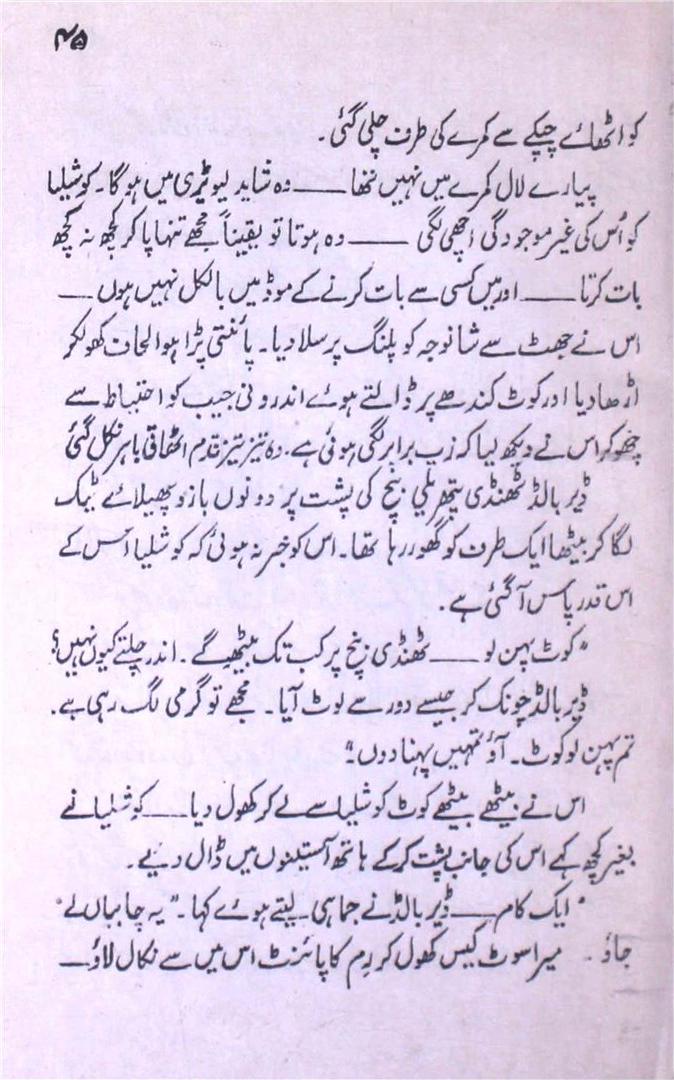 ۴۵
کو اٹھائے چپکے سے کمرے کی طرف چلی گئی۔
پیارے لال کمرے میں نہیں تھا —— وہ شاید لیوٹیری میں ہو گا۔ کوشلیا
کو اُس کی غیر موجودگی اچھی لگی —— وہ ہوتا تو یقیناً مجھے تنہا پا کر کچھ نہ کچھ
بات کرتا —— اور میں کسی سے بات کرنے کے موڈ میں بالکل نہیں ہوں ——
اس نے جھٹ سے شانوجہ کو پلنگ پر سلا دیا۔ پائنتی پڑا ہوا لحاف کھولکر
اڑھا دیا اور کوٹ کندھے پر ڈالتے ہوئے اندرونی جیب کو احتیاط سے
چھو کر اس نے دیکھ لیا کہ زپ برابر لگی ہوئی ہے۔ وہ تیز تیز قدم اٹھاتی باہر نکل گئی
ڈیر بالڈ ٹھنڈی پتھریلی بنچ کی پشت پر دونوں بازو پھیلائے ٹیک
لگا کر بیٹھا ایک طرف کو گھور رہا تھا۔ اس کو خبر نہ ہوئی کہ کوشلیا اس کے
اس قدر پاس آ گئی ہے۔
"کوٹ پہن لو —— ٹھنڈی بنچ پر کب تک بیٹھو گے۔ اندر چلتے کیوں نہیں؟
ڈیر بالڈ چونک کر جیسے دور سے لوٹ آیا۔ مجھے تو گرمی لگ رہی ہے۔
تم پہن لو کوٹ۔ آؤ تمہیں پہنا دوں؟"
اس نے بیٹھے بیٹھے کوٹ کوشلیا سے لے کر کھول دیا —— کوشلیا نے
بغیر کچھ کہے اس کی جانب پشت کر کے ہاتھ آستینوں میں ڈال دیے۔
"ایک کام —— ڈیر بالڈ نے جماہی لیتے ہوئے کہا۔" یہ چابیاں لے"
جاؤ ۔ میرا سوٹ کیس کھول کر رم کا پائنٹ اس میں سے نکال لاؤ ——